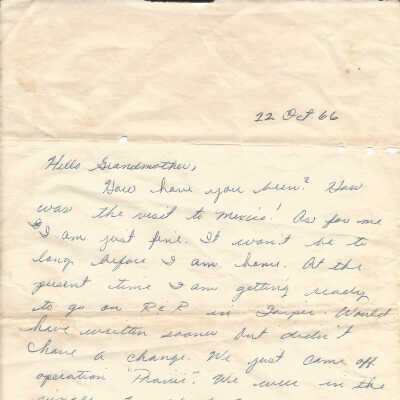 22 Oct. 66
Hello Grandmother,
How have you been? How
was the visit to Mexico! As for me
I am just fine. It won't be to
long before I am home. At the
present time I am getting ready
to go on R & R in Taipei. Would
have written sooner but didn't
have a change. We just came off
operation "Prairie". We were in the